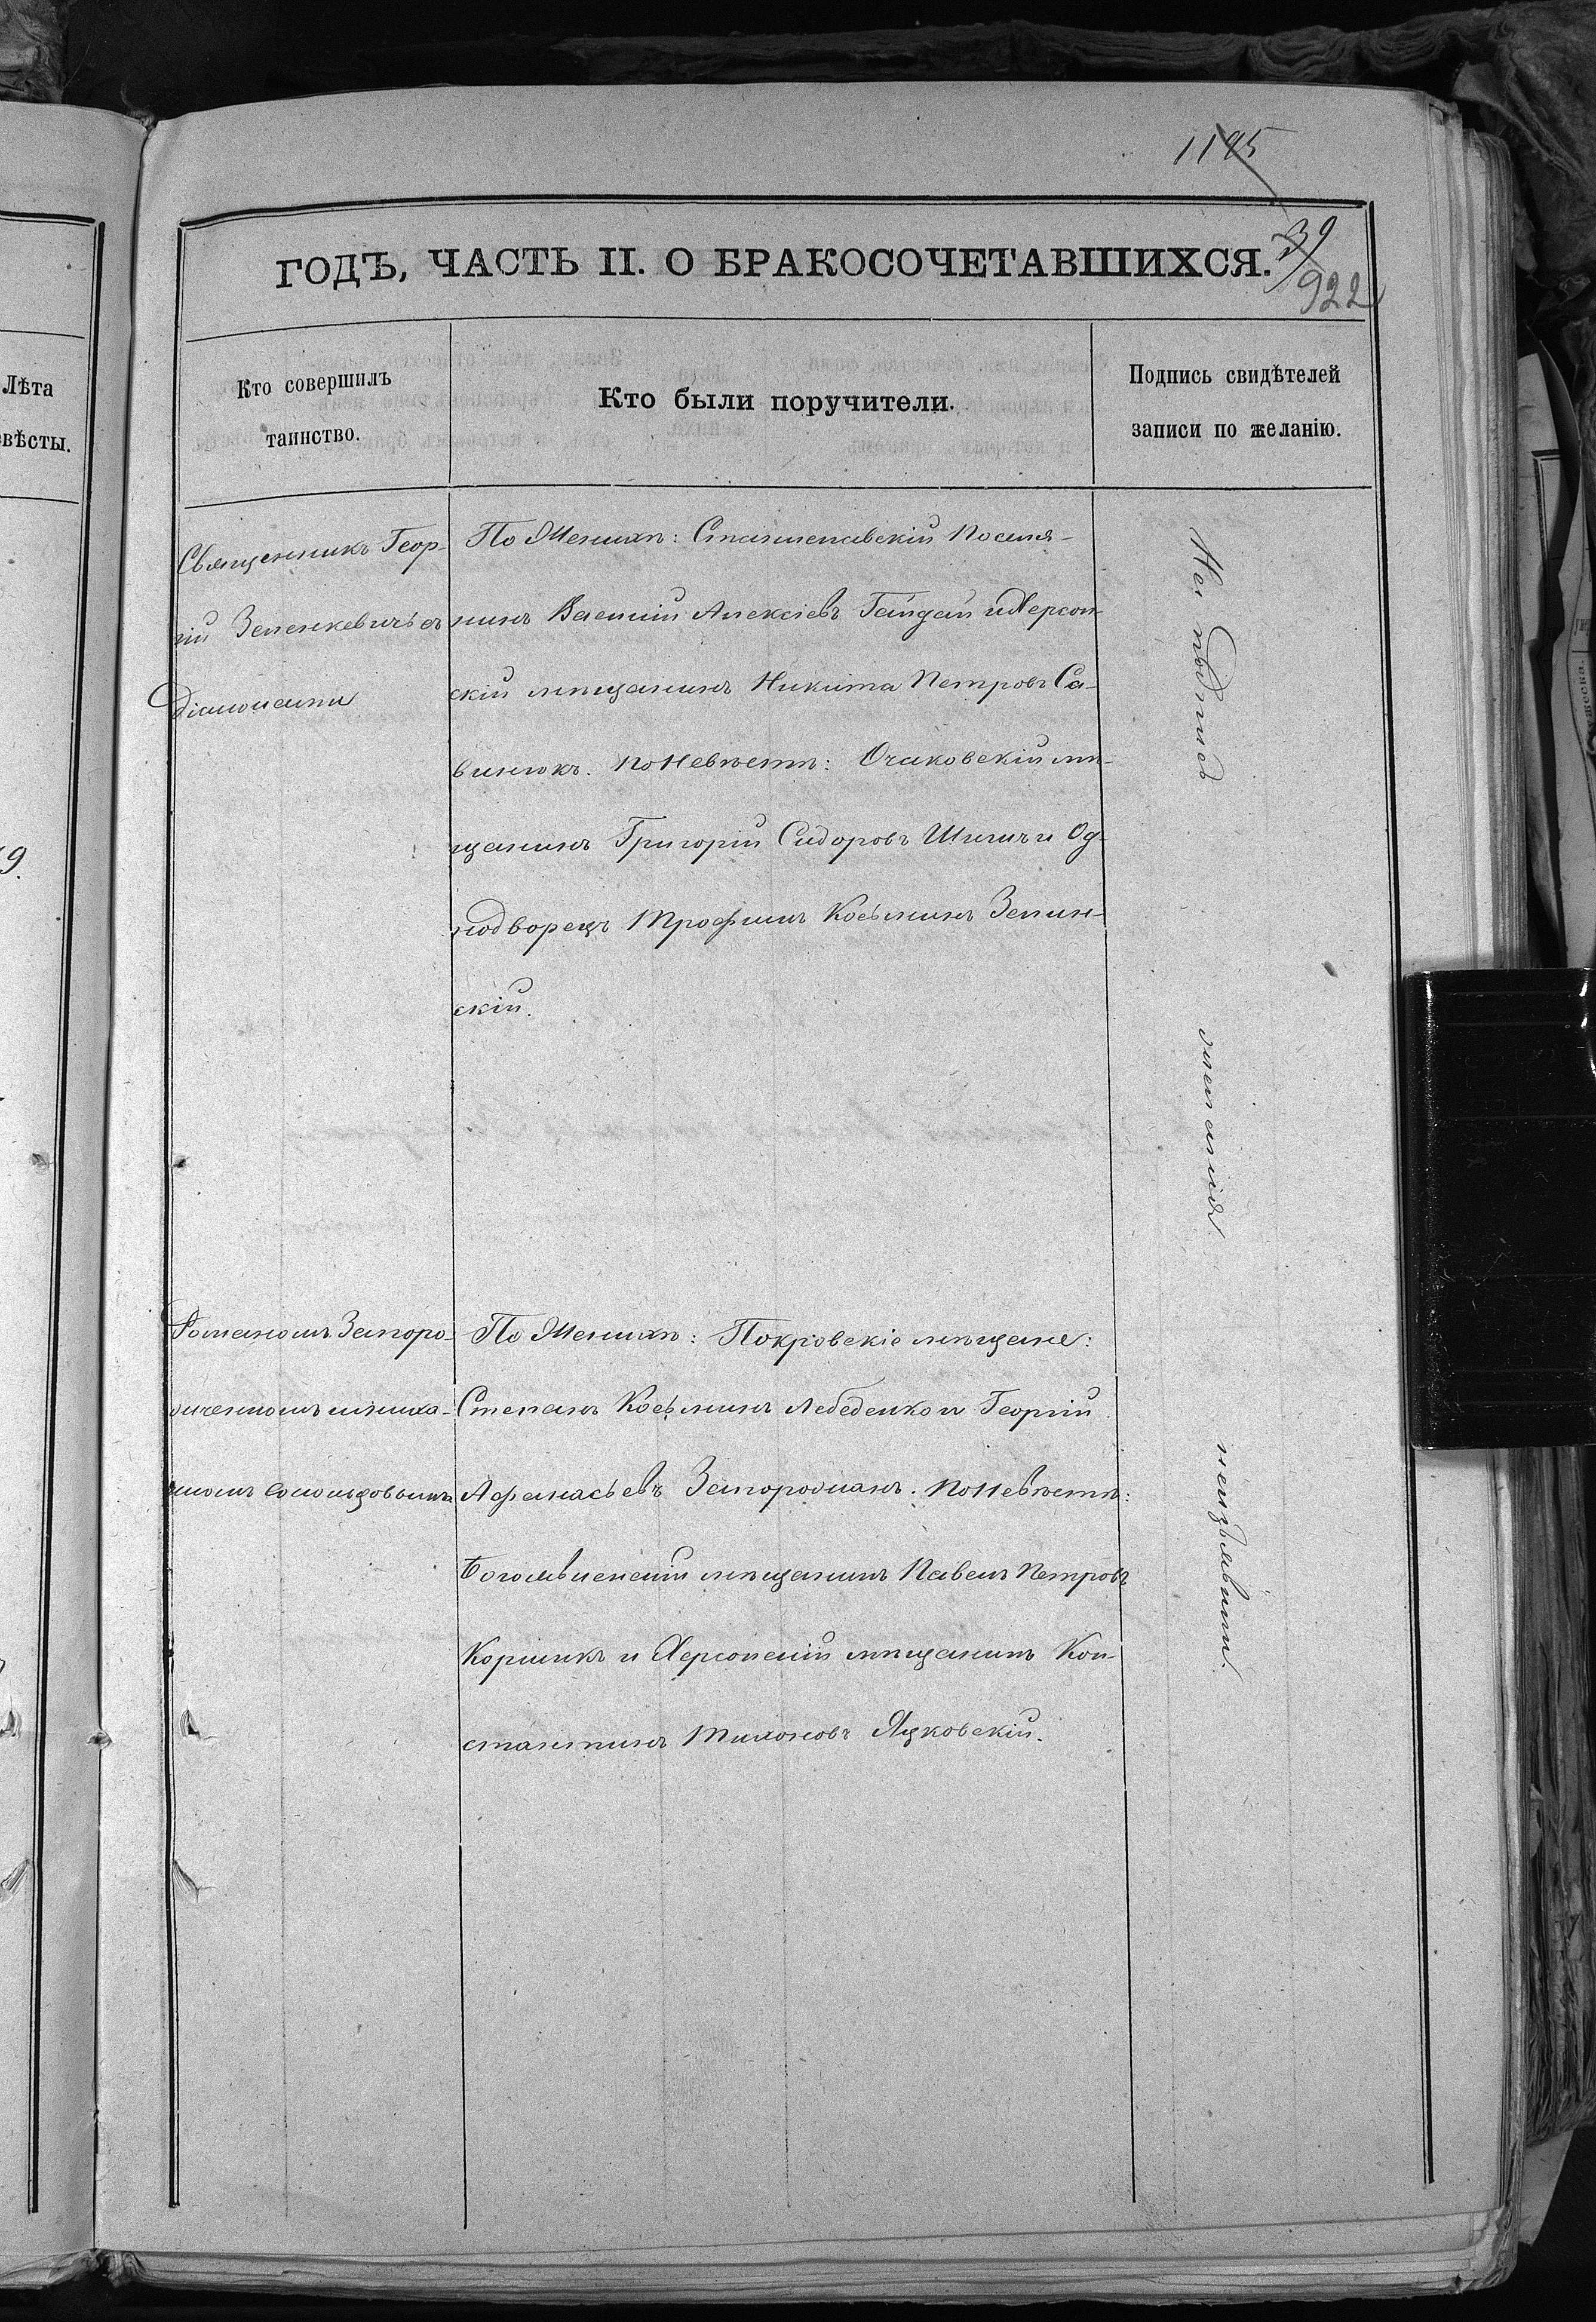 1195
39
922
ГОДЪ, ЧАСТЬ II. О БРАКОСОЧЕТАВШИХСЯ.
Лѣта
вѣсты.
Кто совершилъ
таинство.
Кто были поручители.
Подпись свидѣтелей
записи по желанію.
9.
Священникъ Геор-
гій Зеленкевичъ съ
діаконами
Романомъ Запоро-
жченкомъ и Миха-
иломъ
По Женихѣ: Станиславскій поселя-
нинъ Василій Алексіевъ Гайдай и Херсон-
скій мѣщанинъ Никита Петровъ Са-
винюкъ. По Невѣстѣ: Очаковскій мѣ-
щанинъ Григорій Сидоровъ и Од-
нодворецъ Трофимъ Косьминъ Зелин-
скій.
По Женихѣ: Покровскіе мѣщане:
Степанъ Косьминъ Лебеденко и Георгій
Афанасьевъ Запорожанъ. По Невѣстѣ:
Богоявленскій мѣщанинъ Павелъ Петровъ
Коршикъ и Херсонскій мѣщанинъ Кон-
стантинъ Тихоновъ Яцковскій.
На подпись
желанія
неизъявили.